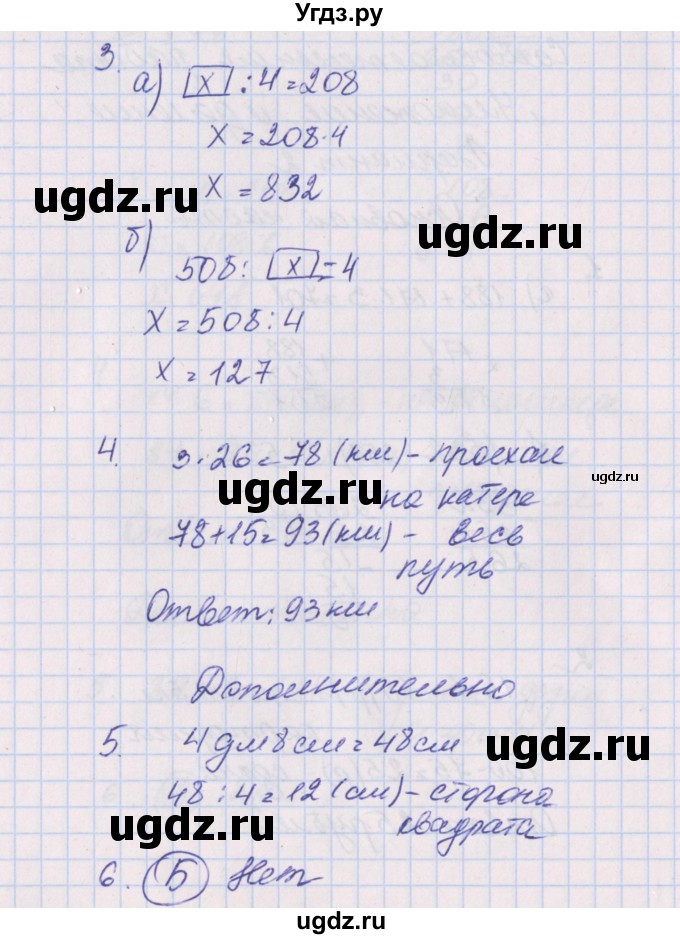 Угдз.ру
3.
а) [x] : 4 = 208
x = 208·4
x = 832
ugdz.ru
ugdz.ru
б)
508 : [x] = 4
x = 508 : 4
x = 127
4. 3·26 = 78 (км) - проехал
ugdz.ru
на катере
78 + 15 = 93 (км) - весь
путь
ugdz.ru
Ответ: 93 км
Дополнительно
5. 4 дм 8 см = 48 см
ugdz.ru
48 : 4 = 12 (см) - сторона
квадрата
ugdz.ru
6. Б Нет
ugdz.ru